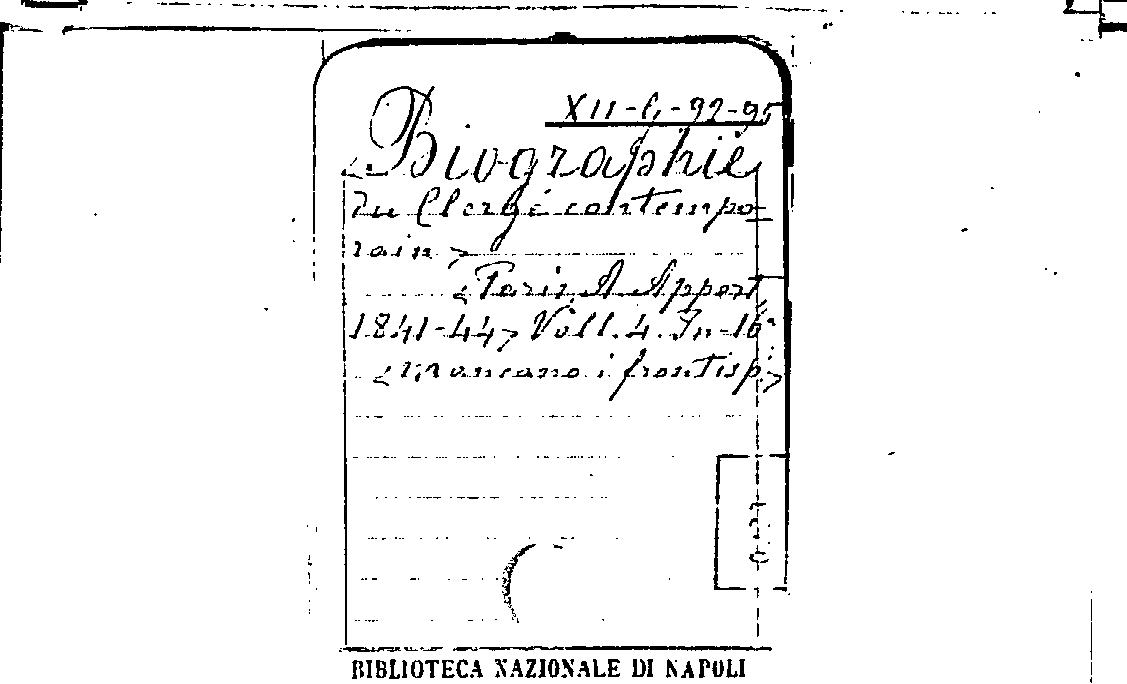 XII-G-92-95
Biographie
du Clergé contempo
rain >
< Paris, A. Appert
1841-44 > Voll. 4. In-16°
< Mancano i frontisp. >
BIBLIOTECA NAZIONALE DI NAPOLI